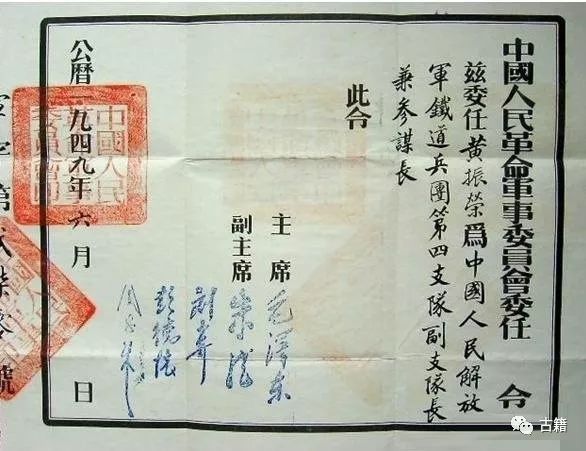 中國人民革命軍事委員會委任令
兹委任黄振榮爲中國人民解放
軍鐵道兵團第四支隊副支隊長
兼參謀長
此令
主席 毛澤東
副主席 朱德
劉少奇
彭德懷
公曆一九四九年六月 日
字第
號
中國人民
革命軍事
委員會印
古籍